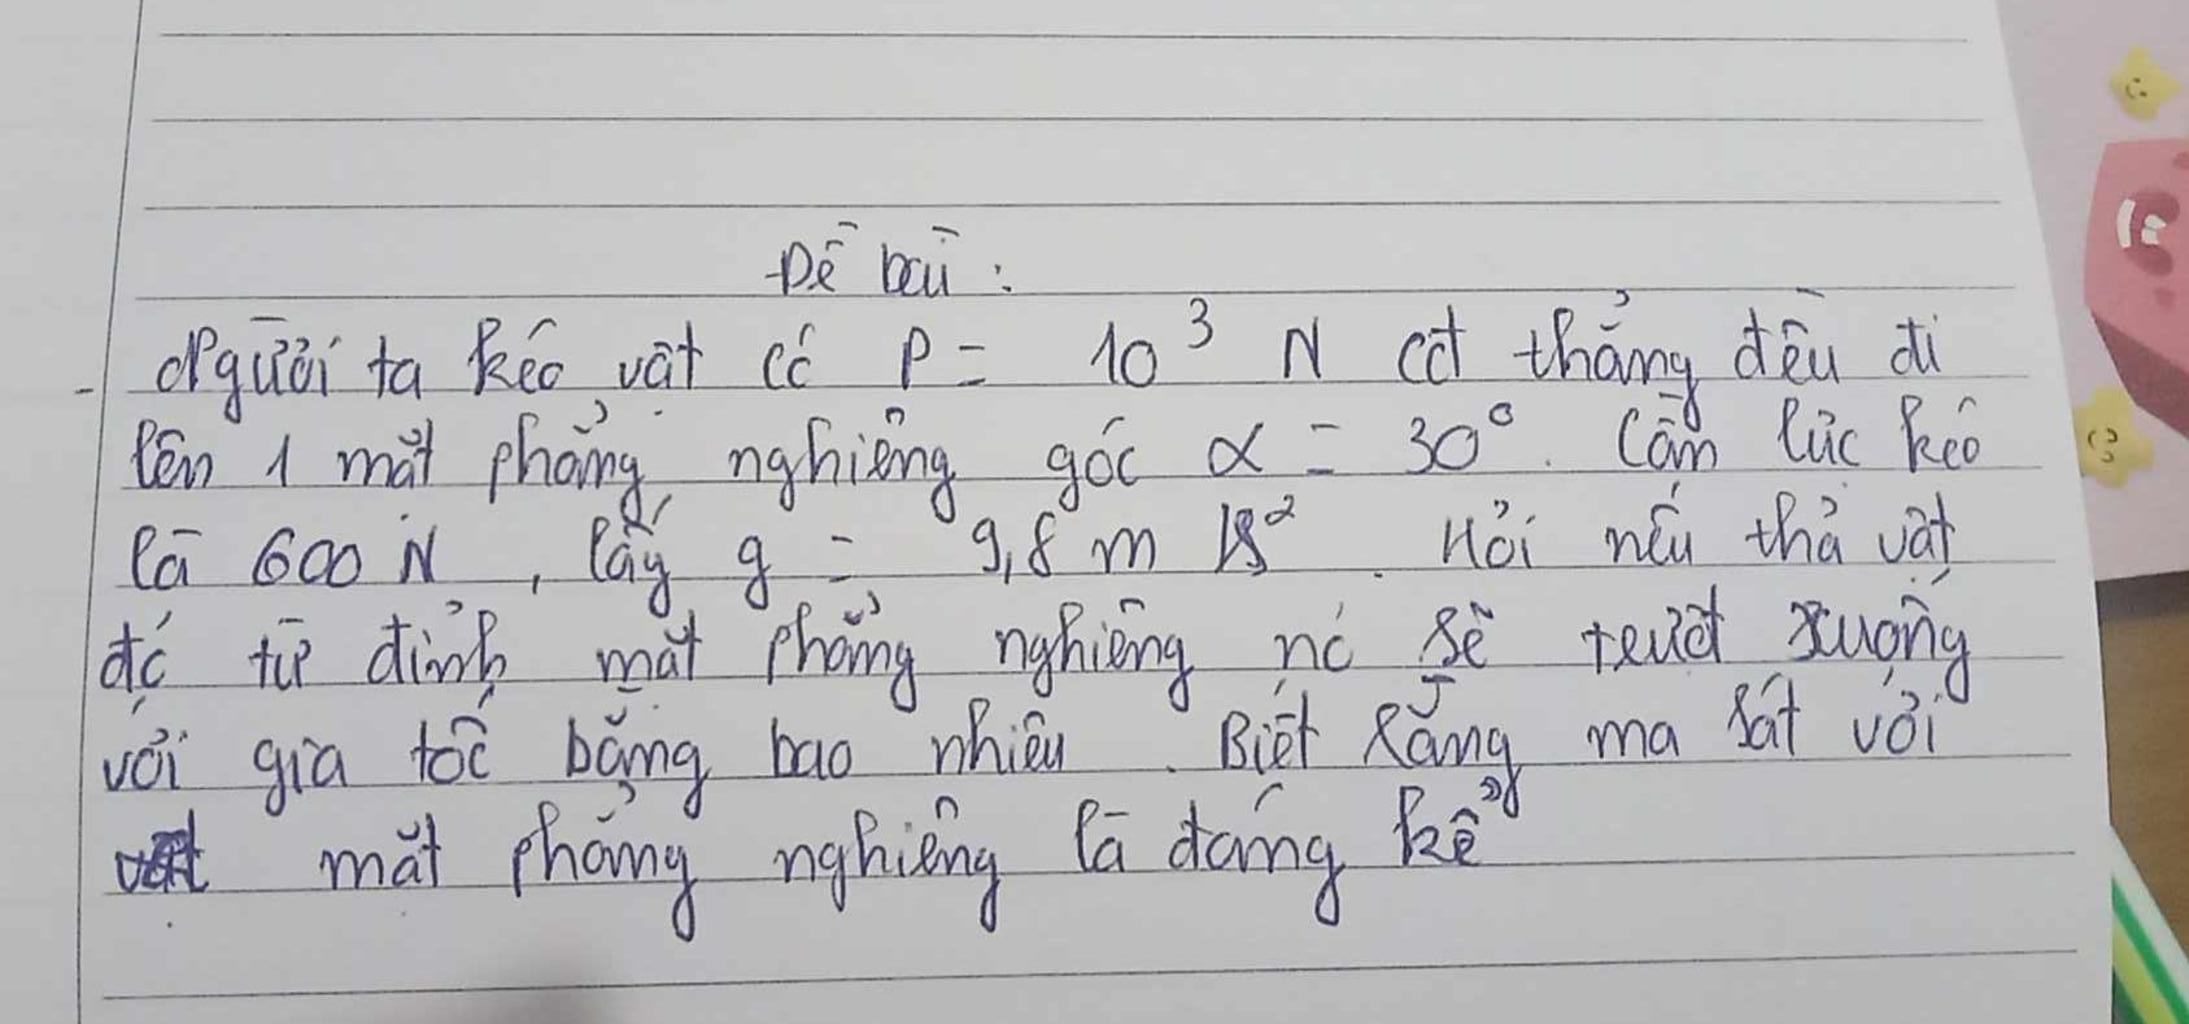 Đề bài :
- Người ta kéo vật có P = 10³ N cđ thẳng đều đi
lên 1 mặt phẳng nghiêng góc α = 30°. Cần lực kéo
là 600 N , lấy g = 9,8 m /s². Hỏi nếu thả vật
đó từ đỉnh mặt phẳng nghiêng nó sẽ trượt xuống
với gia tốc bằng bao nhiêu . Biết rằng ma sát với
mặt phẳng nghiêng là đáng kể